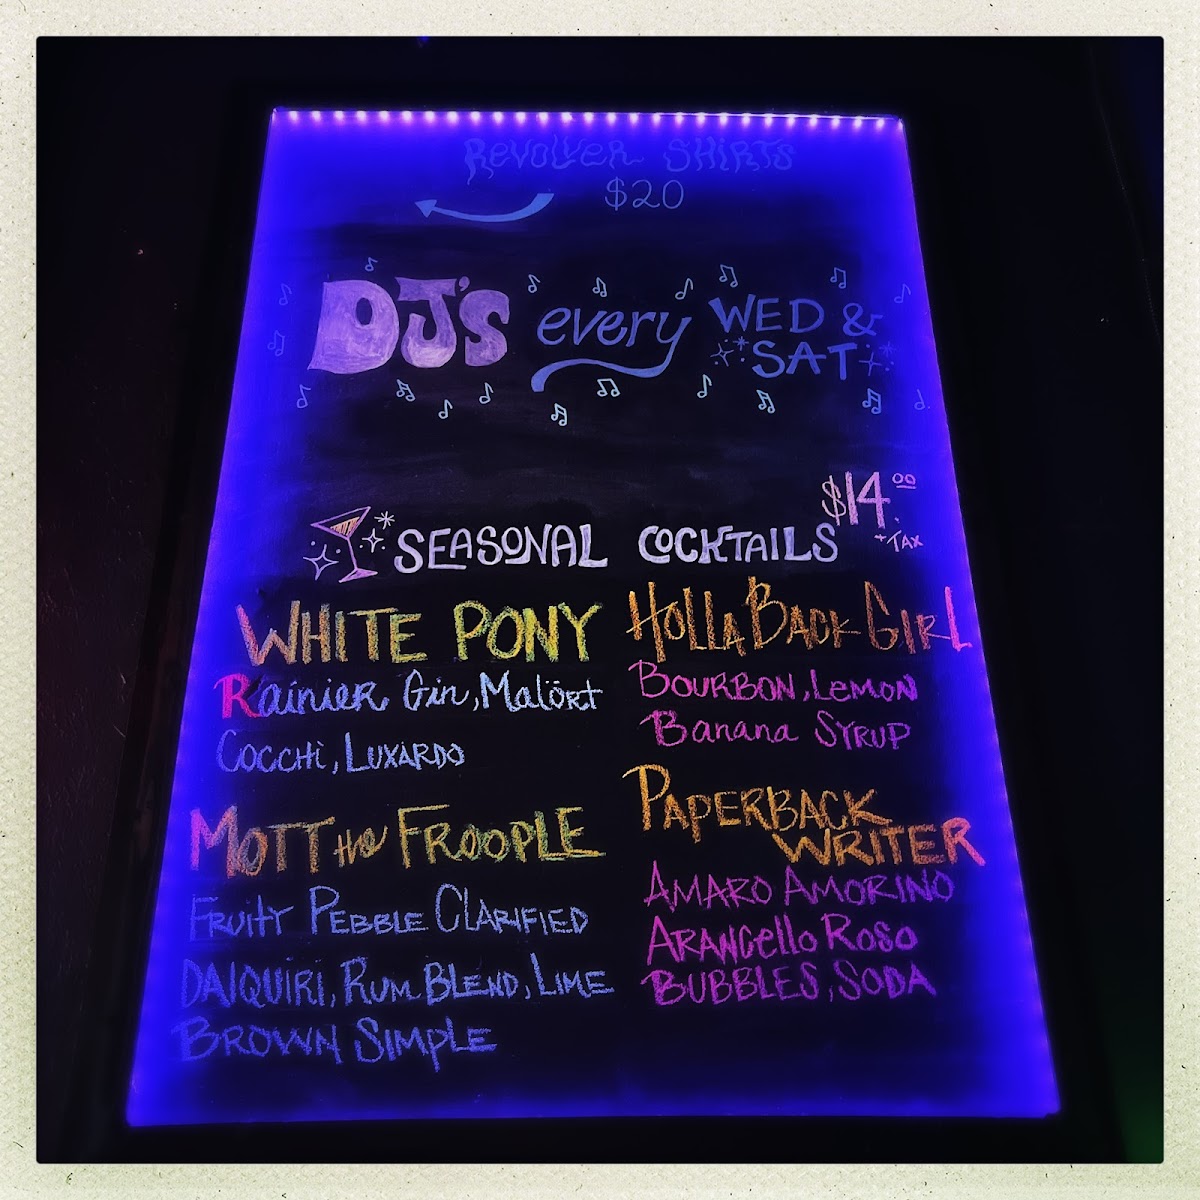 REVOLVER SHIRTS
$20
DJ'S every WED &
SAT
$14.00
+TAX
SEASONAL COCKTAILS
WHITE PONY
Rainier Gin, Malört
Cocchi, Luxardo
MOTT the FROOPLE
FRUITY PEBBLE CLARIFIED
DAIQUIRI, RUM BLEND, LIME
BROWN SIMPLE
HOLLA BACK GIRL
BOURBON, LEMON
Banana SYRUP
PAPERBACK
WRITER
AMARO AMORINO
ARANCello Roso
BUBBLES, SODA